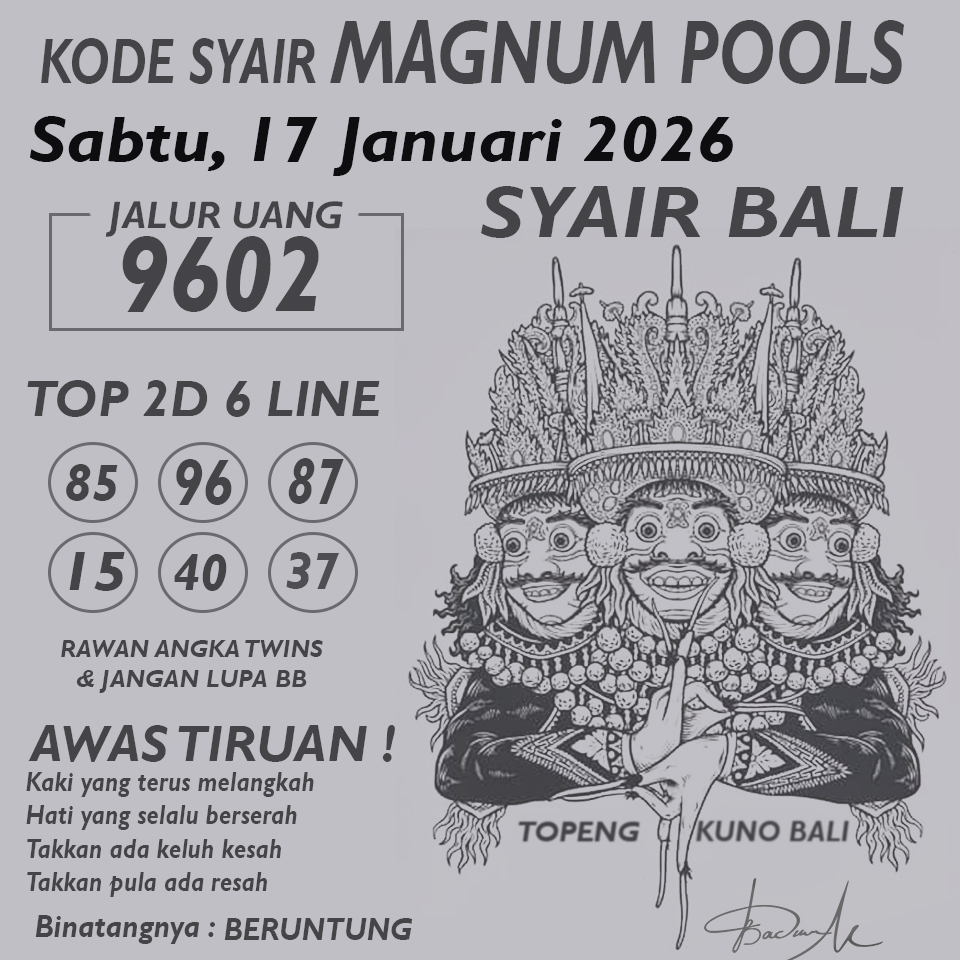 KODE SYAIR MAGNUM POOLS
Sabtu, 17 Januari 2026
SYAIR BALI
JALUR UANG
9602
TOP 2D 6 LINE
85 96 87
15 40 37
RAWAN ANGKA TWINS
& JANGAN LUPA BB
AWAS TIRUAN !
Kaki yang terus melangkah
Hati yang selalu berserah
Takkan ada keluh kesah
Takkan pula ada resah
Binatangnya : BERUNTUNG
TOPENG KUNO BALI